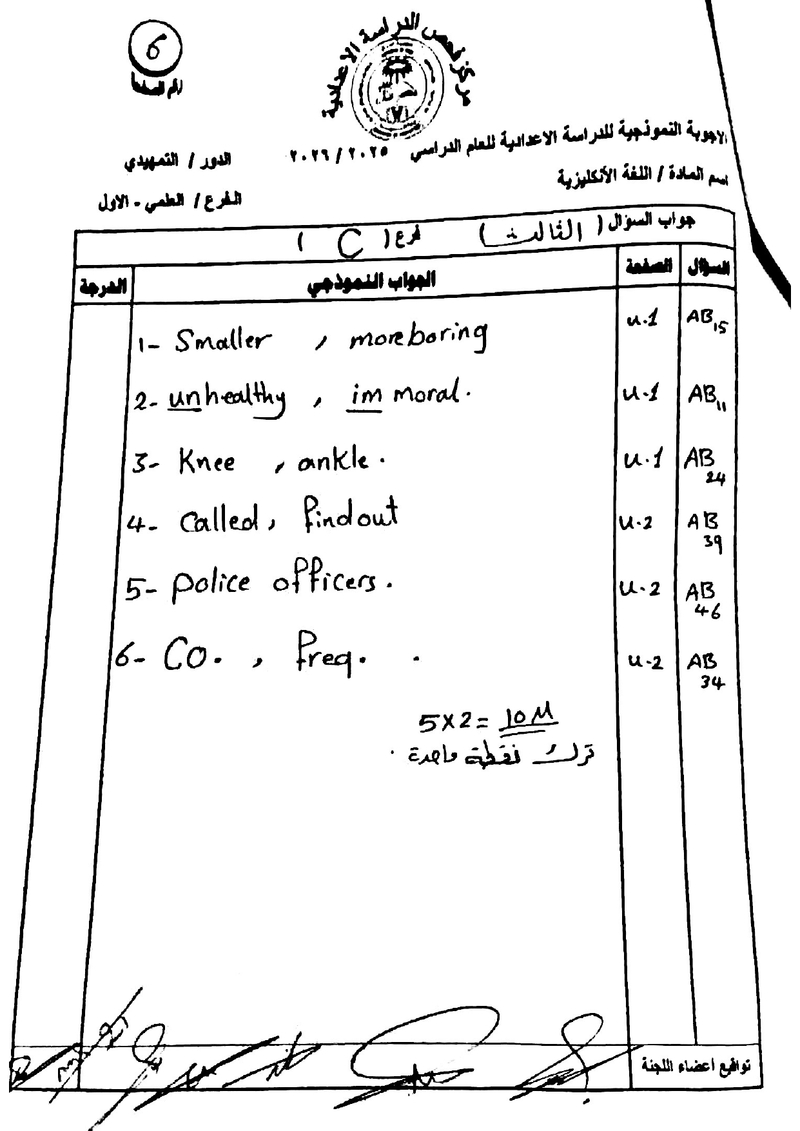 6
رقم الصفحة
مركز فحص الدراسة الاعدادية
الاجوبة النموذجية للدراسة الاعدادية للعام الدراسي ٢٠٢٥ / ٢٠٢٦
الدور / التمهيدي
اسم المادة / اللغة الأنكليزية
الفرع / العلمي - الاول
جواب السؤال ( الثالث ) فرع ( C )
السؤال الصفحة الجواب النموذجي الدرجة
1- Smaller , more boring u.1 AB 15
2- unhealthy , immoral. u.1 AB 11
3- Knee , ankle. u.1 AB 24
4- Called, find out u-2 AB 39
5- police officers. u-2 AB 46
6- CO. , freq. . u-2 AB 34
5x2 = 10 M
ترك نقطة واحدة .
تواقيع اعضاء اللجنة